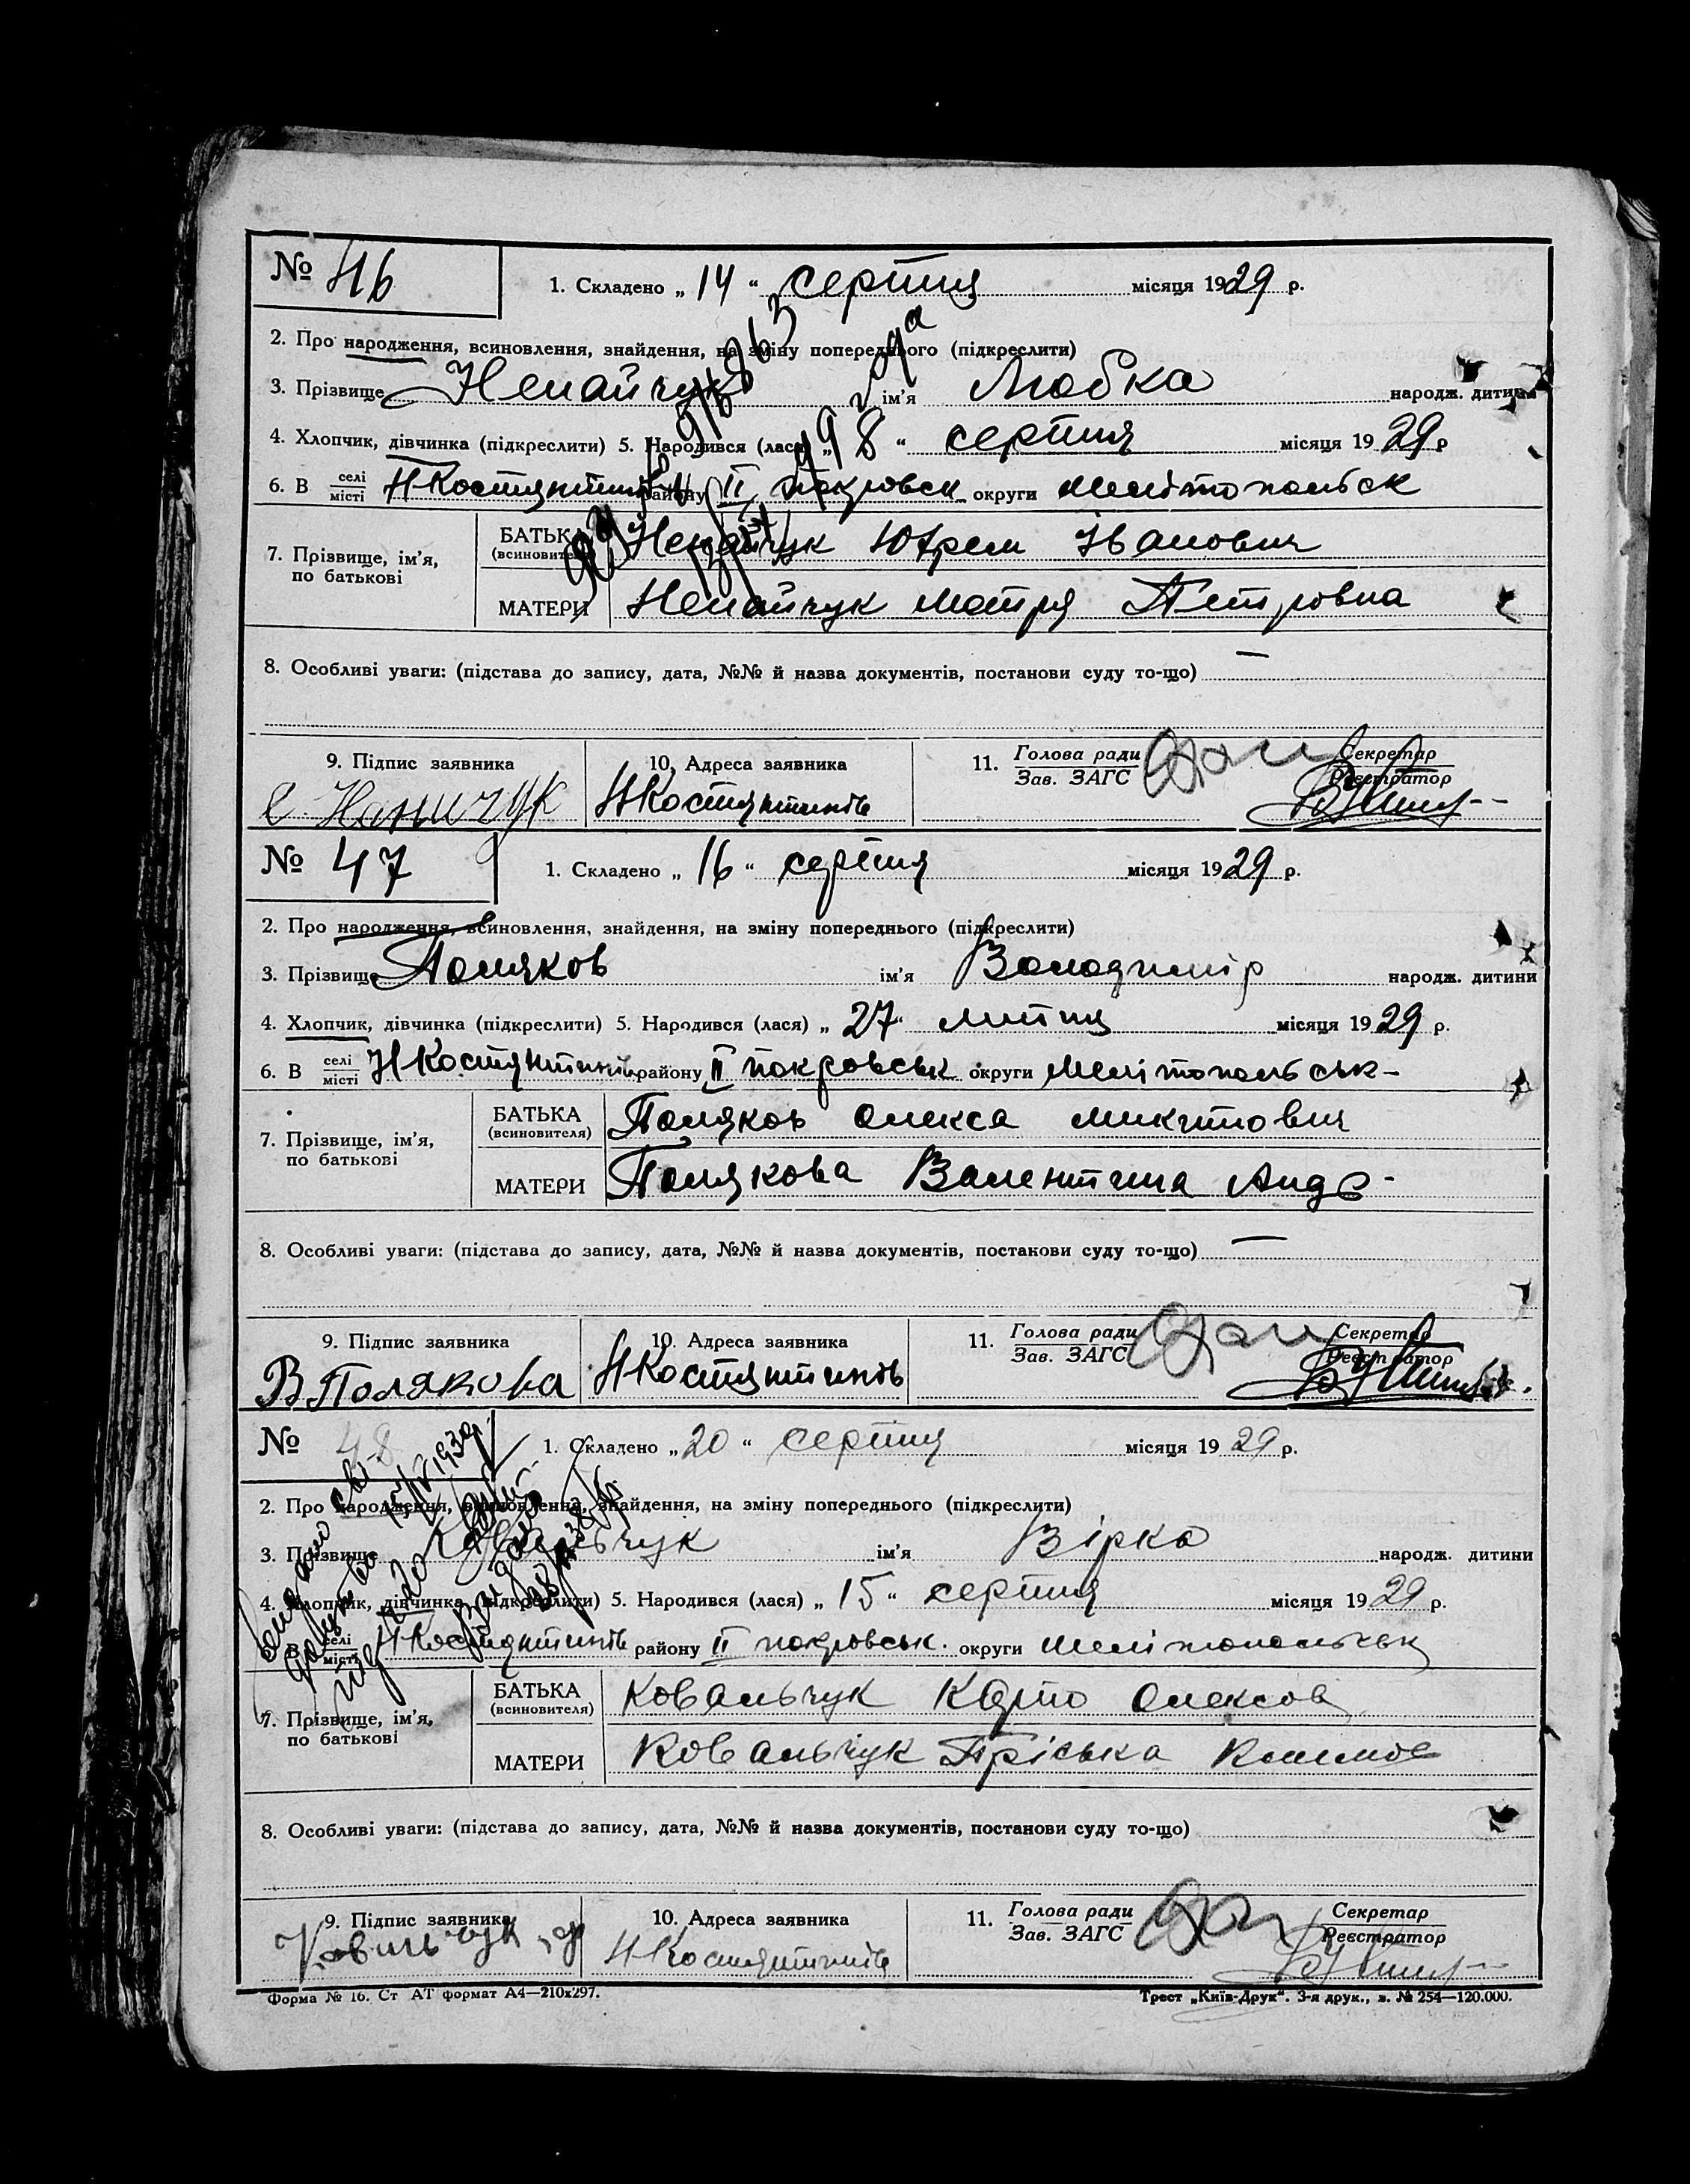 № 46
1. Складено „ 14 “ серпня місяця 1929 р.
2. Про народження, всиновлення, знайдення, на зміну попереднього (підкреслити)
3. Прізвище Ненайчук ім'я Любка народж. дитини
4. Хлопчик, дівчинка (підкреслити) 5. Народився (лася) „ 8 “ серпня місяця 1929 р
6. В селі місті Н Костянтинів району II покровськ округи Мелітопольск
7. Прізвище, ім'я, по батькові
БАТЬКА (всиновителя) Ненайчук Юхрем Іванович
МАТЕРИ Ненайчук Мотря Петровна
8. Особливі уваги: (підстава до запису, дата, №№ й назва документів, постанови суду то-що) —
9. Підпис заявника
10. Адреса заявника Н Костянтинів
11. Голова ради Зав. ЗАГС
Секретар Реєстратор
№ 47
1. Складено „ 16 “ серпня місяця 1929 р.
2. Про народження, всиновлення, знайдення, на зміну попереднього (підкреслити)
3. Прізвище Поляков ім'я Володимір народж. дитини
4. Хлопчик, дівчинка (підкреслити) 5. Народився (лася) „ 27 “ липня місяця 1929 р.
6. В селі місті Н Костянтинів району II покровськ округи Мелітопольськ-
7. Прізвище, ім'я, по батькові
БАТЬКА (всиновителя) Поляков Олекса Микитович
МАТЕРИ Полякова Валентина Андр-
8. Особливі уваги: (підстава до запису, дата, №№ й назва документів, постанови суду то-що) —
9. Підпис заявника В Полякова
10. Адреса заявника Н Костянтинів
11. Голова ради Зав. ЗАГС
Секретар Реєстратор
№ 48
1. Складено „ 20 “ серпня місяця 1929 р.
2. Про народження, всиновлення, знайдення, на зміну попереднього (підкреслити)
3. Прізвище Ковальчук ім'я Вірка народж. дитини
4. Хлопчик, дівчинка (підкреслити) 5. Народився (лася) „ 15 “ серпня місяця 1929 р.
6. В селі місті Н Костянтинів району II покровськ. округи Мелітопольськ
7. Прізвище, ім'я, по батькові
БАТЬКА (всиновителя) Ковальчук Карпо Олексов
МАТЕРИ Ковальчук Пріська Климов
8. Особливі уваги: (підстава до запису, дата, №№ й назва документів, постанови суду то-що)
9. Підпис заявника Ковальчук
10. Адреса заявника Н Костянтинів
11. Голова ради Зав. ЗАГС
Секретар Реєстратор
Форма № 16. Ст АТ формат А4—210x297.
Трест „Київ-Друк“. 3-я друк., з. № 254—120.000.